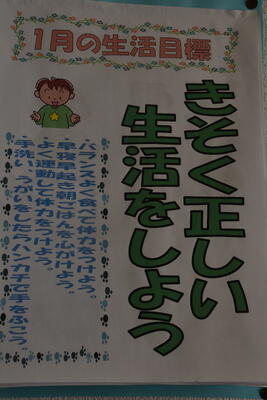 1月の生活目標
きそく正しい
生活をしよう
・バランスよく食べて体力をつけよう。
・早寝早起き朝ごはんを心がけよう。
・よく運動して体力をつけよう。
・手洗い、うがいをしたらハンカチで手をふこう。